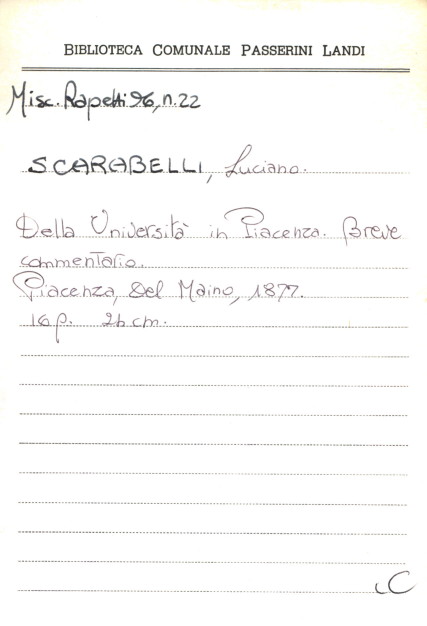 BIBLIOTECA COMUNALE PASSERINI LANDI
Misc. Rapetti 96, n. 22
SCARABELLI, Luciano.
Della Università in Piacenza. Breve
commentario.
Piacenza, Del Maino, 1877.
16 p. cm.